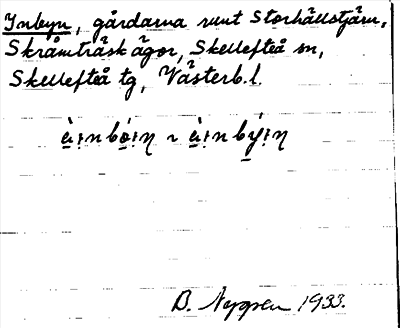 Inbyn, gårdarna runt Storhällstjärn,
Skråmträsk ägor, Skellefteå sn,
Skellefteå tg, Västerb. l.
B. Nygren 1933.